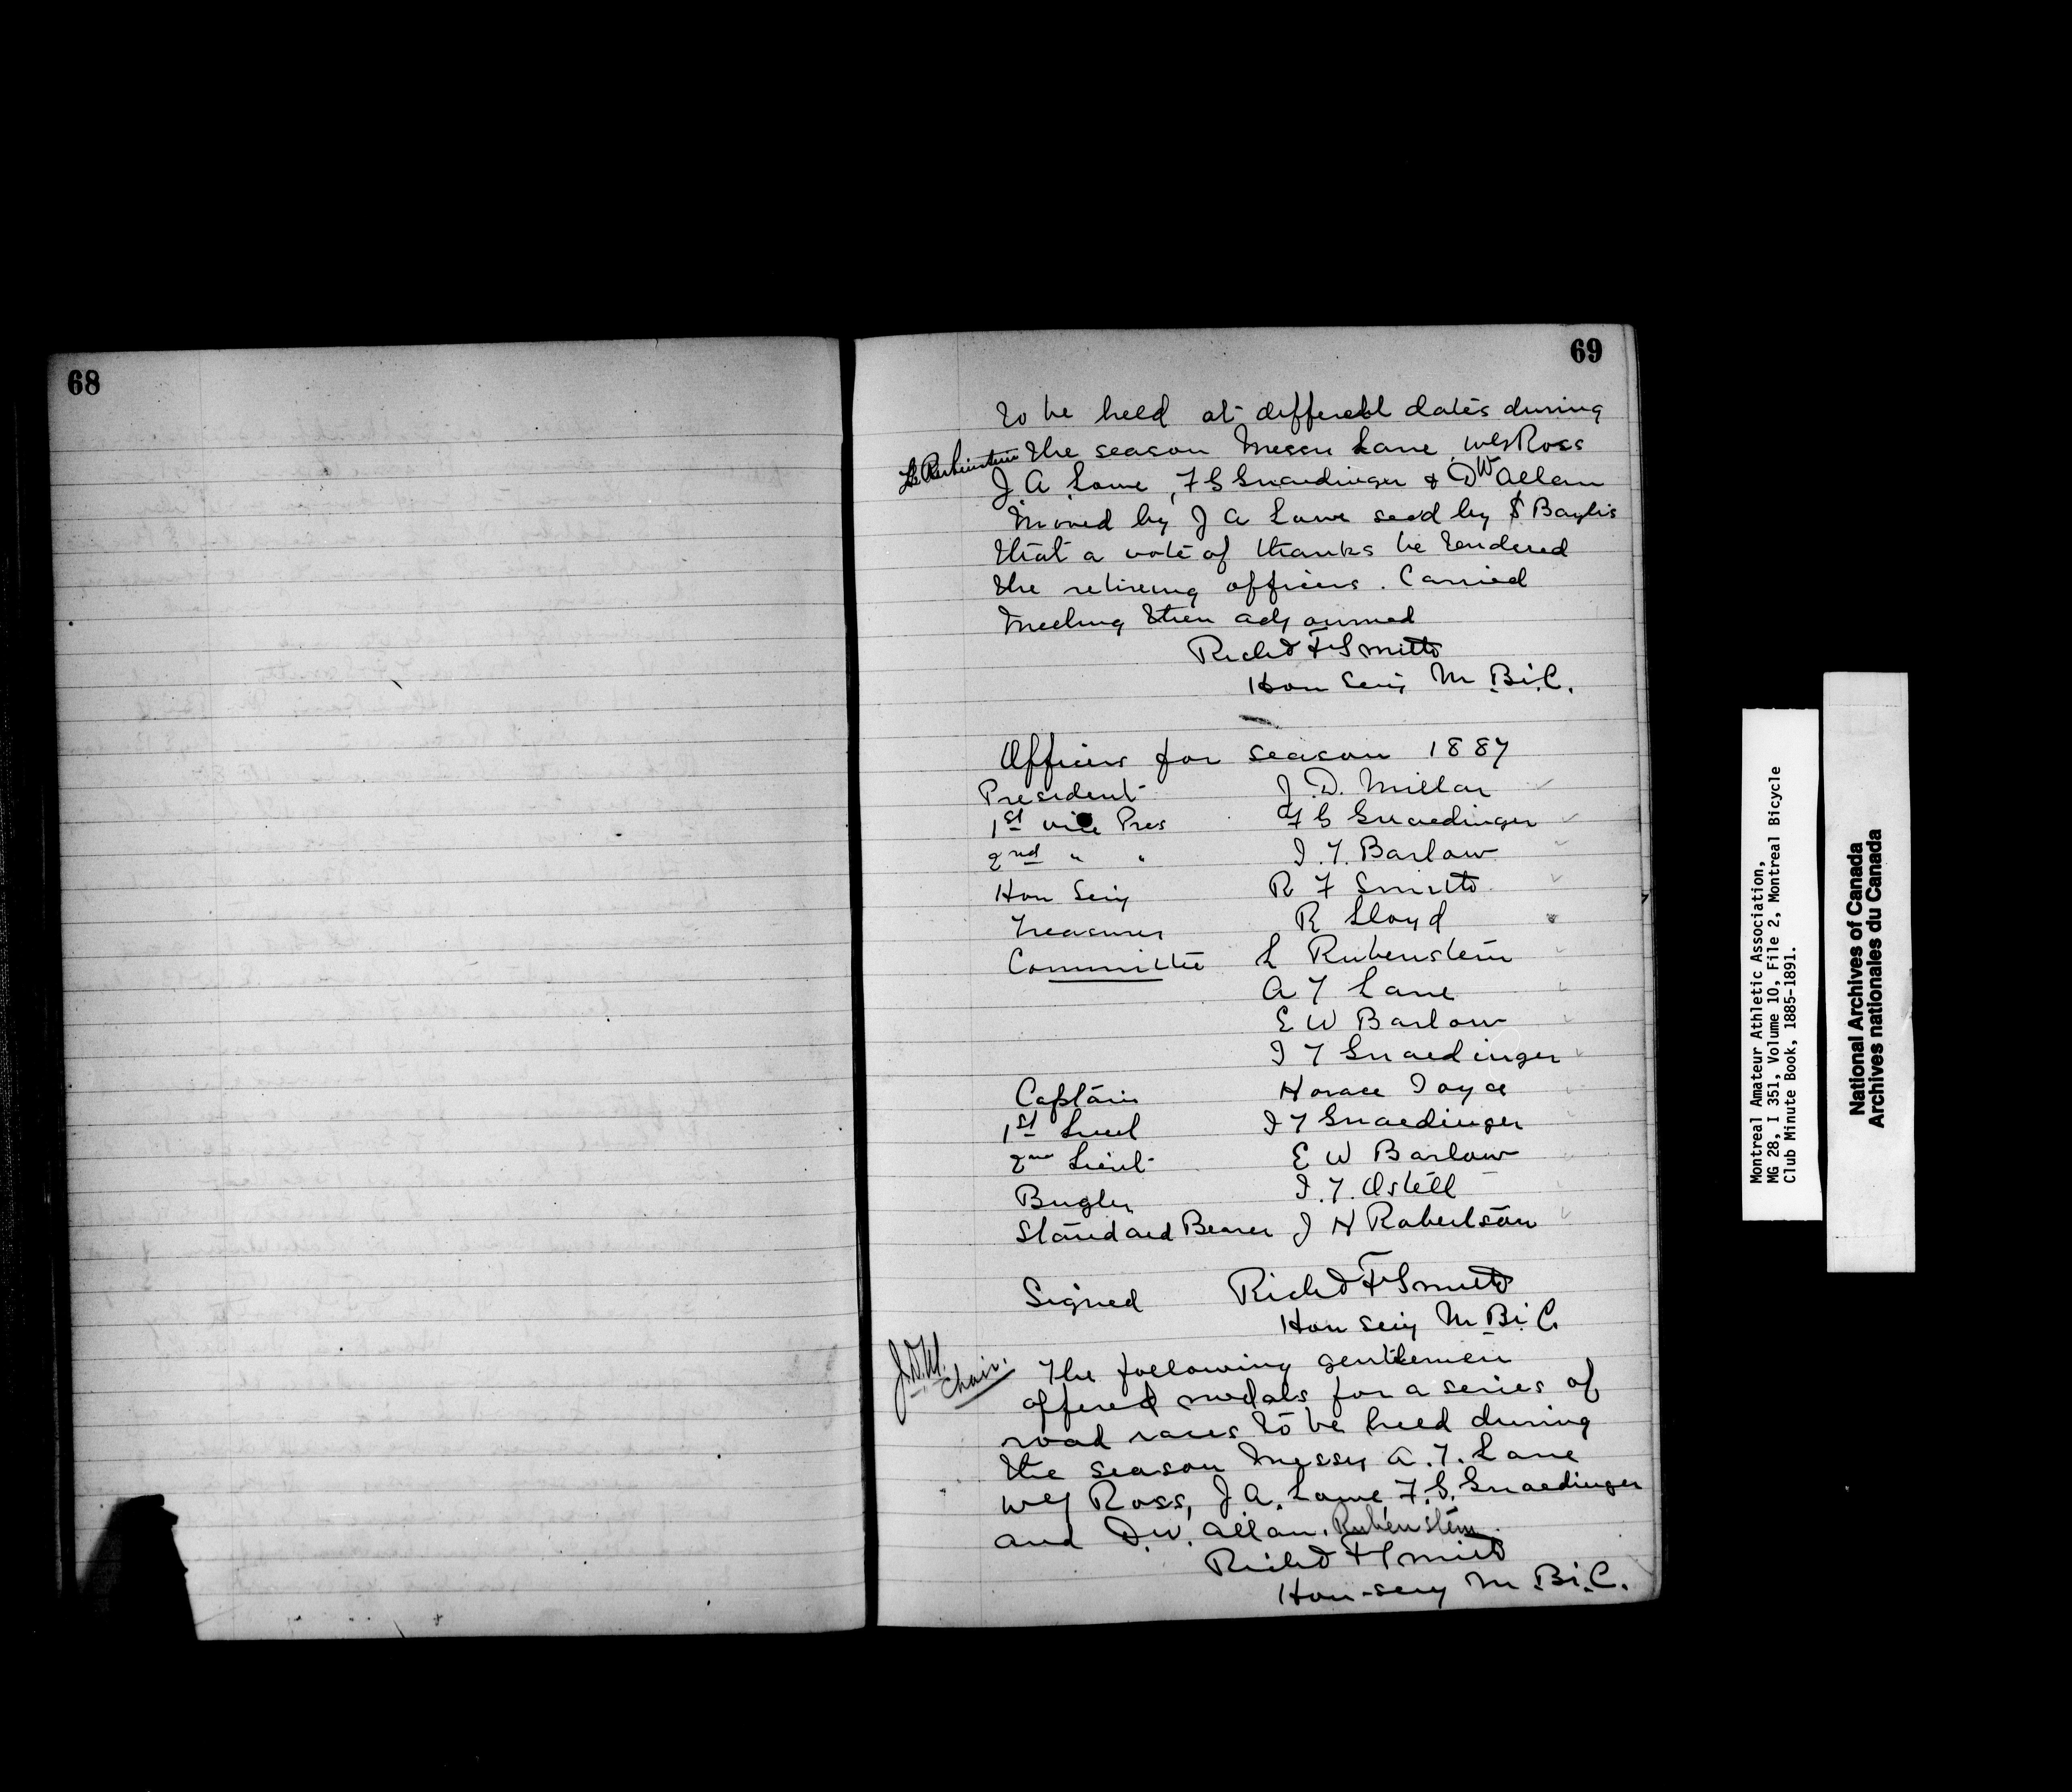 68
69
to be held at different dates during
L Rubenstein the season Messrs Lane, W G Ross
J. A. Lowe, F G Gnaedinger & D W Allan
Moved by J A Lowe secd by S Baylis
that a vote of thanks be tendered
the retiring officers. Carried
Meeting then adjourned
Richd F Smith
Hon Secy M. Bi. C.
Officers for season 1887
President J. D. Millar
1st Vice Pres F G Gnaedinger
2nd " " J. T. Barlow
Hon Secy R F Smith
Treasurer R Lloyd
Committee L Rubenstein
A T Lane
E W Barlow
J T Gnaedinger
Captain Horace Joyce
1st Lieut J T Gnaedinger
2nd Lieut E W Barlow
Bugler J. T. Ostell
Standard Bearer J H Robertson
Signed Richd F Smith
Hon Secy M. Bi. C
J.D.M. Chair.
The following gentlemen
offered medals for a series of
road races to be held during
the season Messrs A. T. Lane
W G Ross, J. A. Lowe, F. G. Gnaedinger
and D. W. Allan, Rubenstein
Richd F Smith
Hon-Secy M. Bi. C.
Montreal Amateur Athletic Association,
MG 28, I 351, Volume 10, File 2, Montreal Bicycle
Club Minute Book, 1885-1891.
National Archives of Canada
Archives nationales du Canada